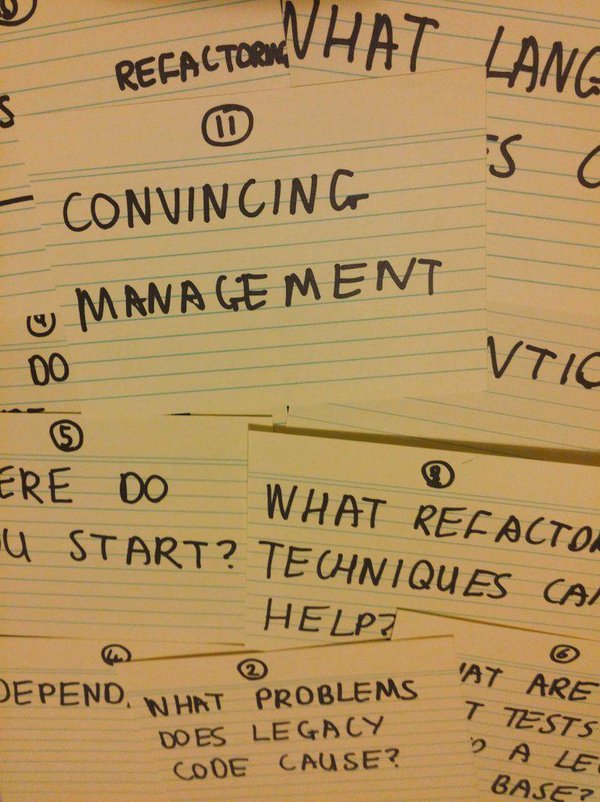 REFACTORING
WHAT LANG
S
11
CONVINCING
MANAGEMENT
4
DO
5
ERE DO
U START?
8
WHAT REFACTOR
TECHNIQUES CA
HELP?
DEPEND.
2
WHAT PROBLEMS
DOES LEGACY
CODE CAUSE?
6
AT ARE
T TESTS
A LE
BASE?